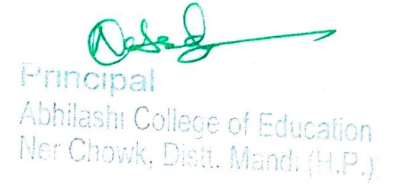 Principal
Abhilashi College of Education
Ner Chowk, Distt. Mandi (H.P.)